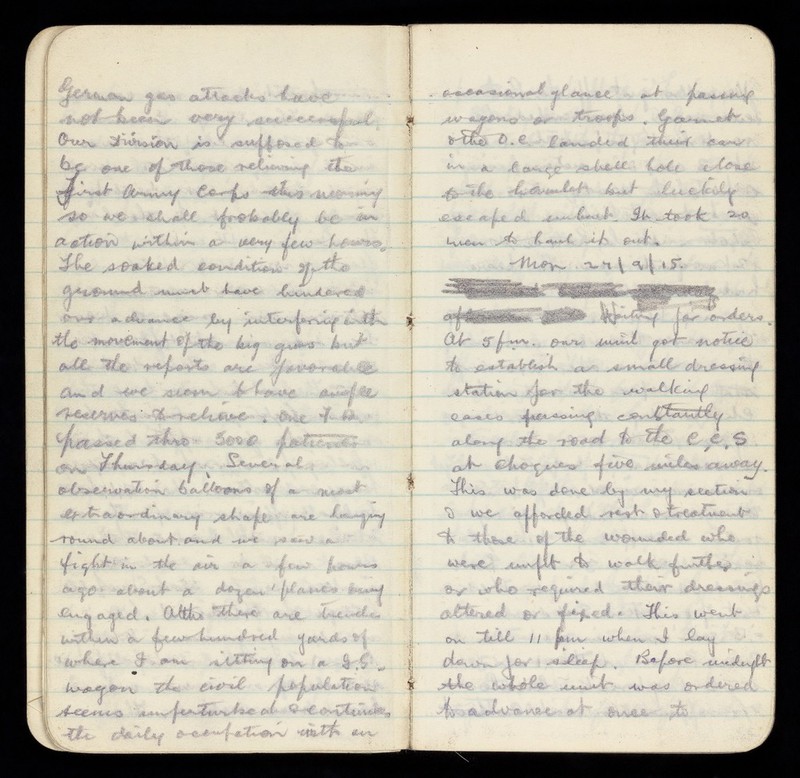 German gas attacks have
not been very successful.
Our Division is supposed to
be one of those relieving the
first Army Corps this morning
so we shall probably be in
action within a very few hours.
The soaked condition of the
ground must have hindered
our advance by interfering with
the movement of the big guns but
all the reports are favorable
and we seem to have ample
reserves to relieve. One F.A.
passed thro 5000 patients
on Thursday. Several
observation balloons of a most
extraordinary shape are hanging
round about and we saw a
fight in the air a few hours
ago about a dozen 'planes being
engaged. Altho there are trenches
within a few hundred yards of
where I am sitting on a G.S.
wagon the civil population
seems unperturbed & continues
the daily occupation with an
occasional glance at passing
wagons or troops. Garnet
& the O.C. landed their car
in a large shell hole close
to the hamlet but luckily
escaped unhurt. It took 20
men to haul it out.
Mon 27/9/15.
Waiting for orders.
At 5 p.m. our unit got notice
to establish a small dressing
station for the walking
cases passing constantly
along the road to the C.C.S
at Choques five miles away.
This was done by my section
& we afforded rest & treatment
to those of the wounded who
were unfit to walk further
or who required their dressings
altered or fixed. This went
on till 11 pm when I lay
down for sleep. Before midnight
the whole unit was ordered
to advance at once to